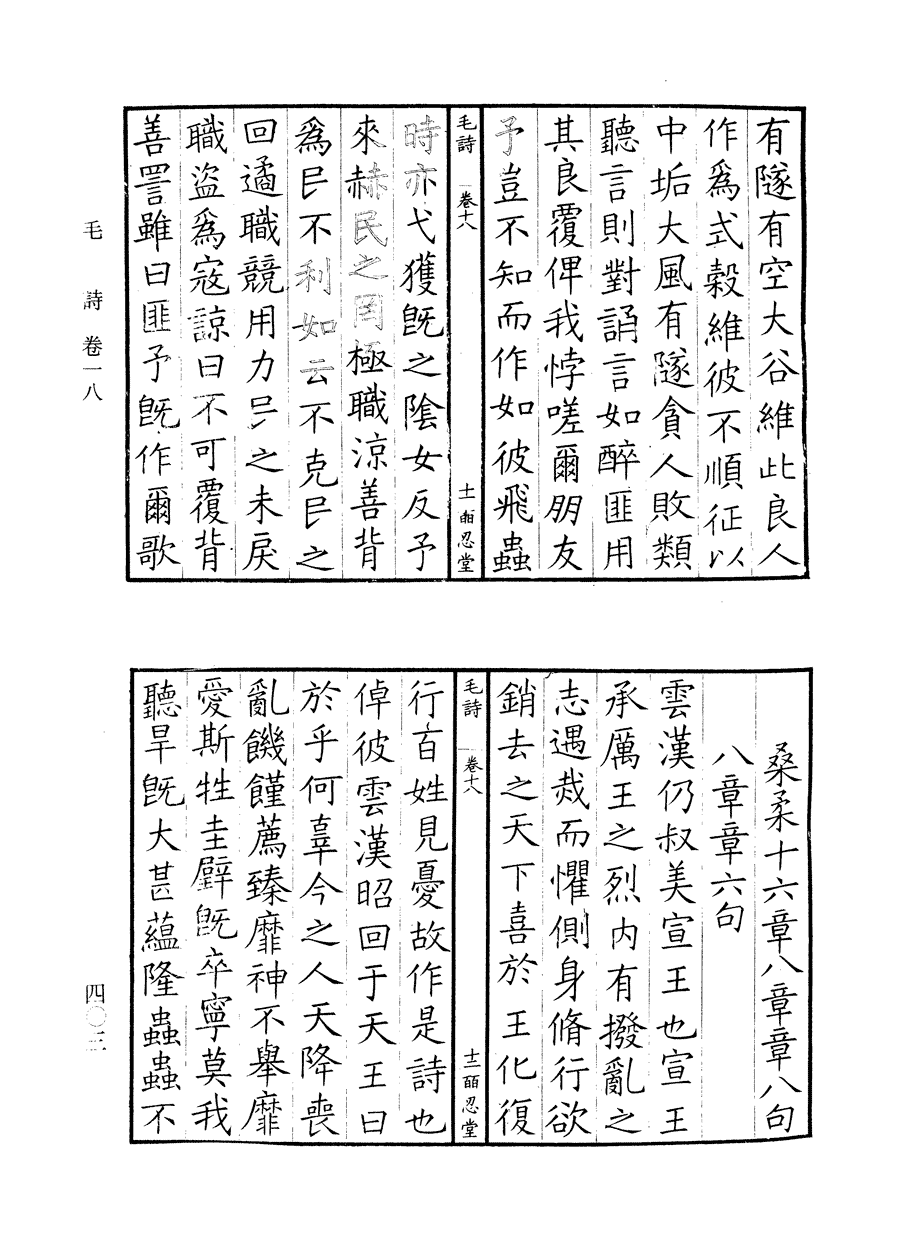 有隧有空大谷維此良人
作爲式榖維彼不順征以
中垢大風有隧貪人敗類
聽言則對誦言如醉匪用
其良覆俾我悖嗟爾朋友
予豈不知而作如彼飛蟲
毛詩 卷十八 十一 皕忍堂
時亦弋獲旣之陰女反予
來赫民之罔極職涼善背
爲民不利如云不克民之
回遹職競用力民之未戾
職盜爲寇諒曰不可覆背
善詈雖曰匪予旣作爾歌
桑柔十六章八章章八句
八章章六句
雲漢仍叔美宣王也宣王
承厲王之烈內有撥亂之
志遇烖而懼側身脩行欲
銷去之天下喜於王化復
毛詩 卷十八 十二 皕忍堂
行百姓見憂故作是詩也
倬彼雲漢昭回于天王曰
於乎何辜今之人天降喪
亂饑饉薦臻靡神不舉靡
愛斯牲圭璧旣卒寧莫我
聽旱旣大甚蘊隆蟲蟲不
毛詩卷一八
四〇三